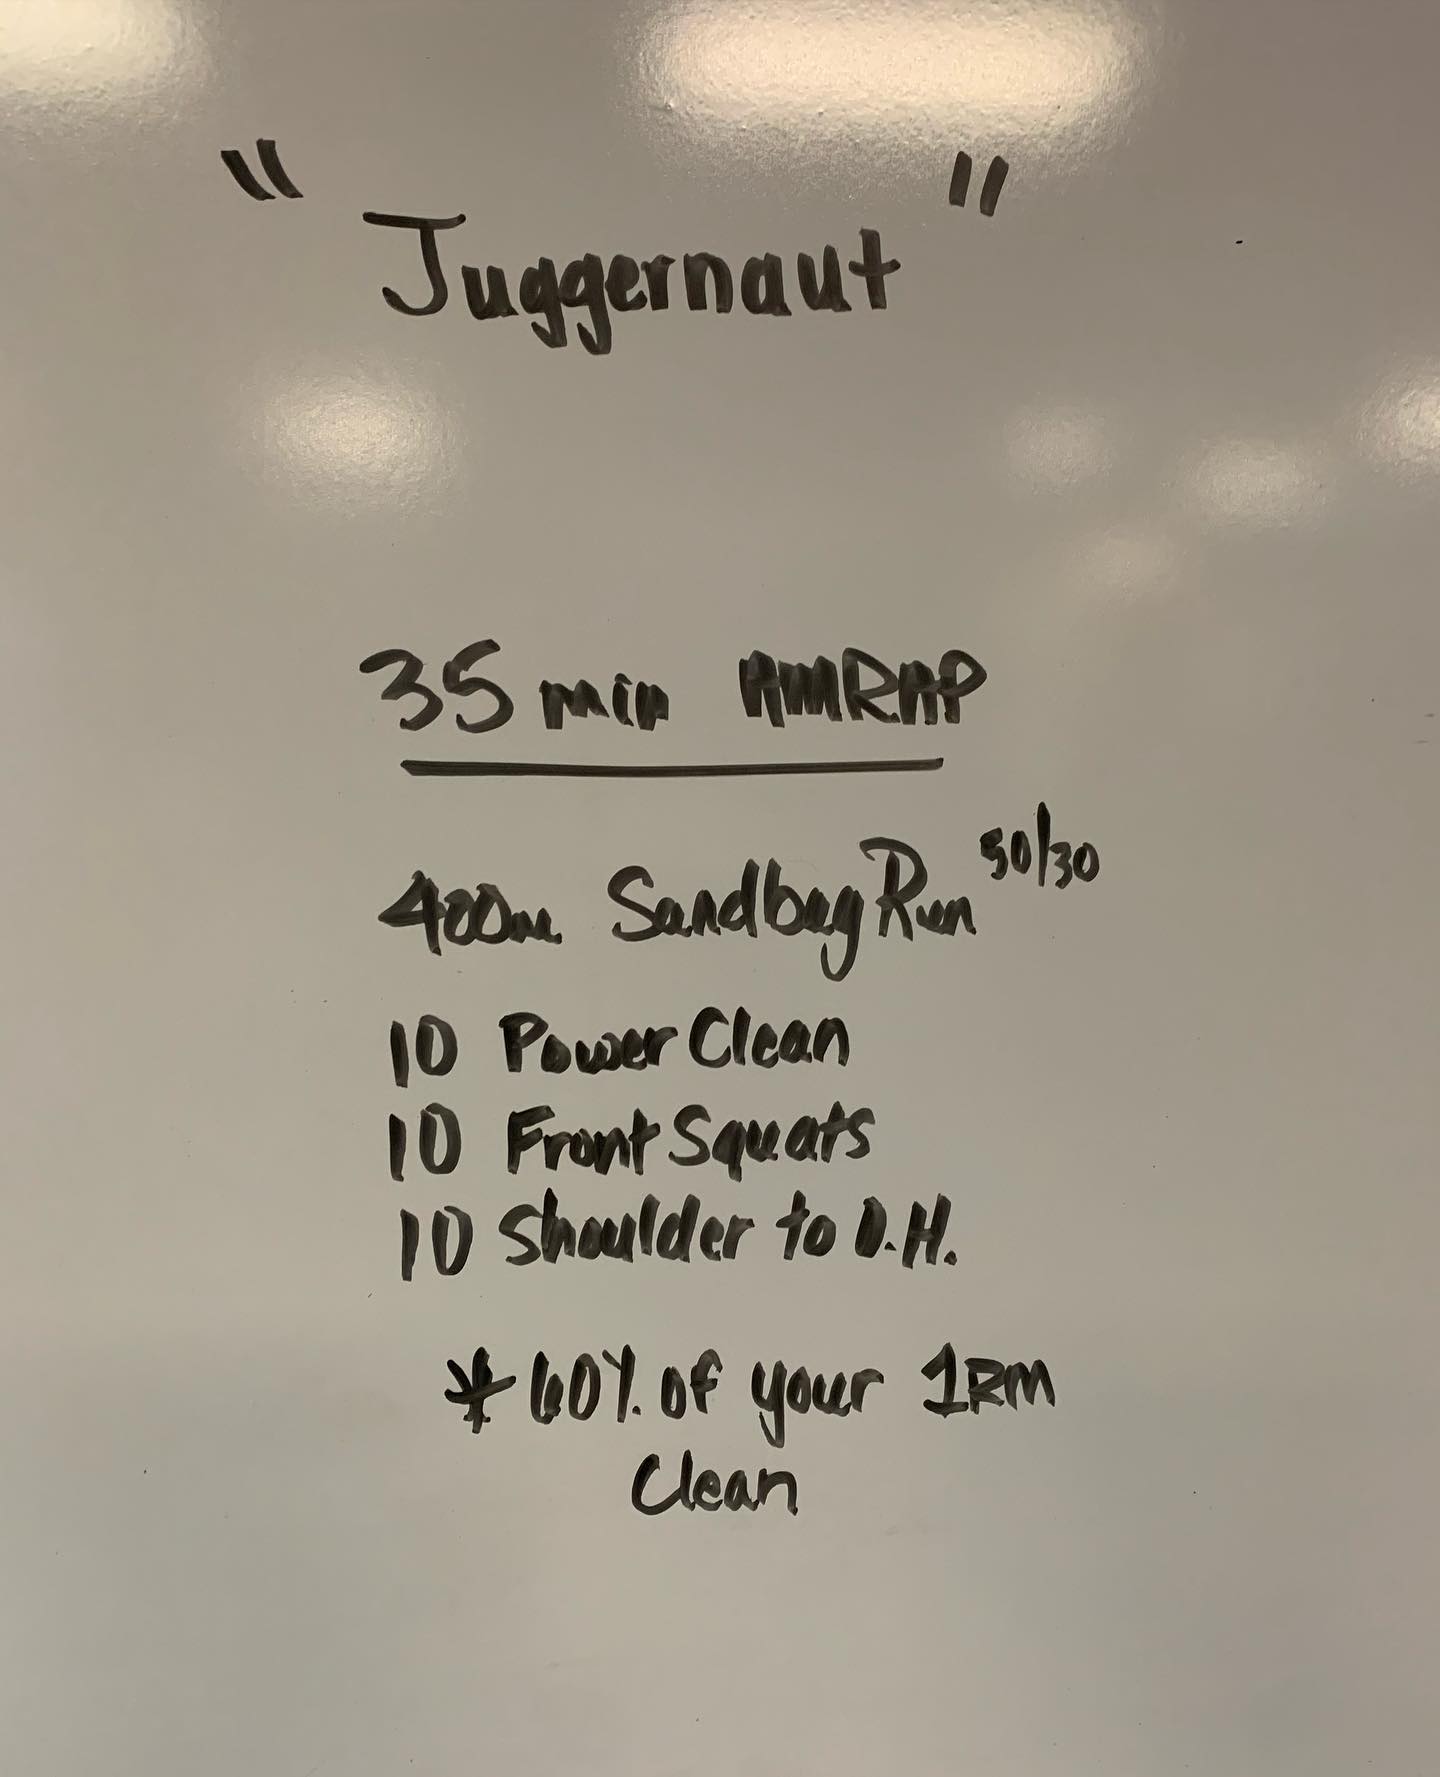 "Juggernaut"
35 min AMRAP
400m Sandbag Run 50/30
10 Power Clean
10 Front Squats
10 Shoulder to O.H.
* 60% of your 1RM
Clean